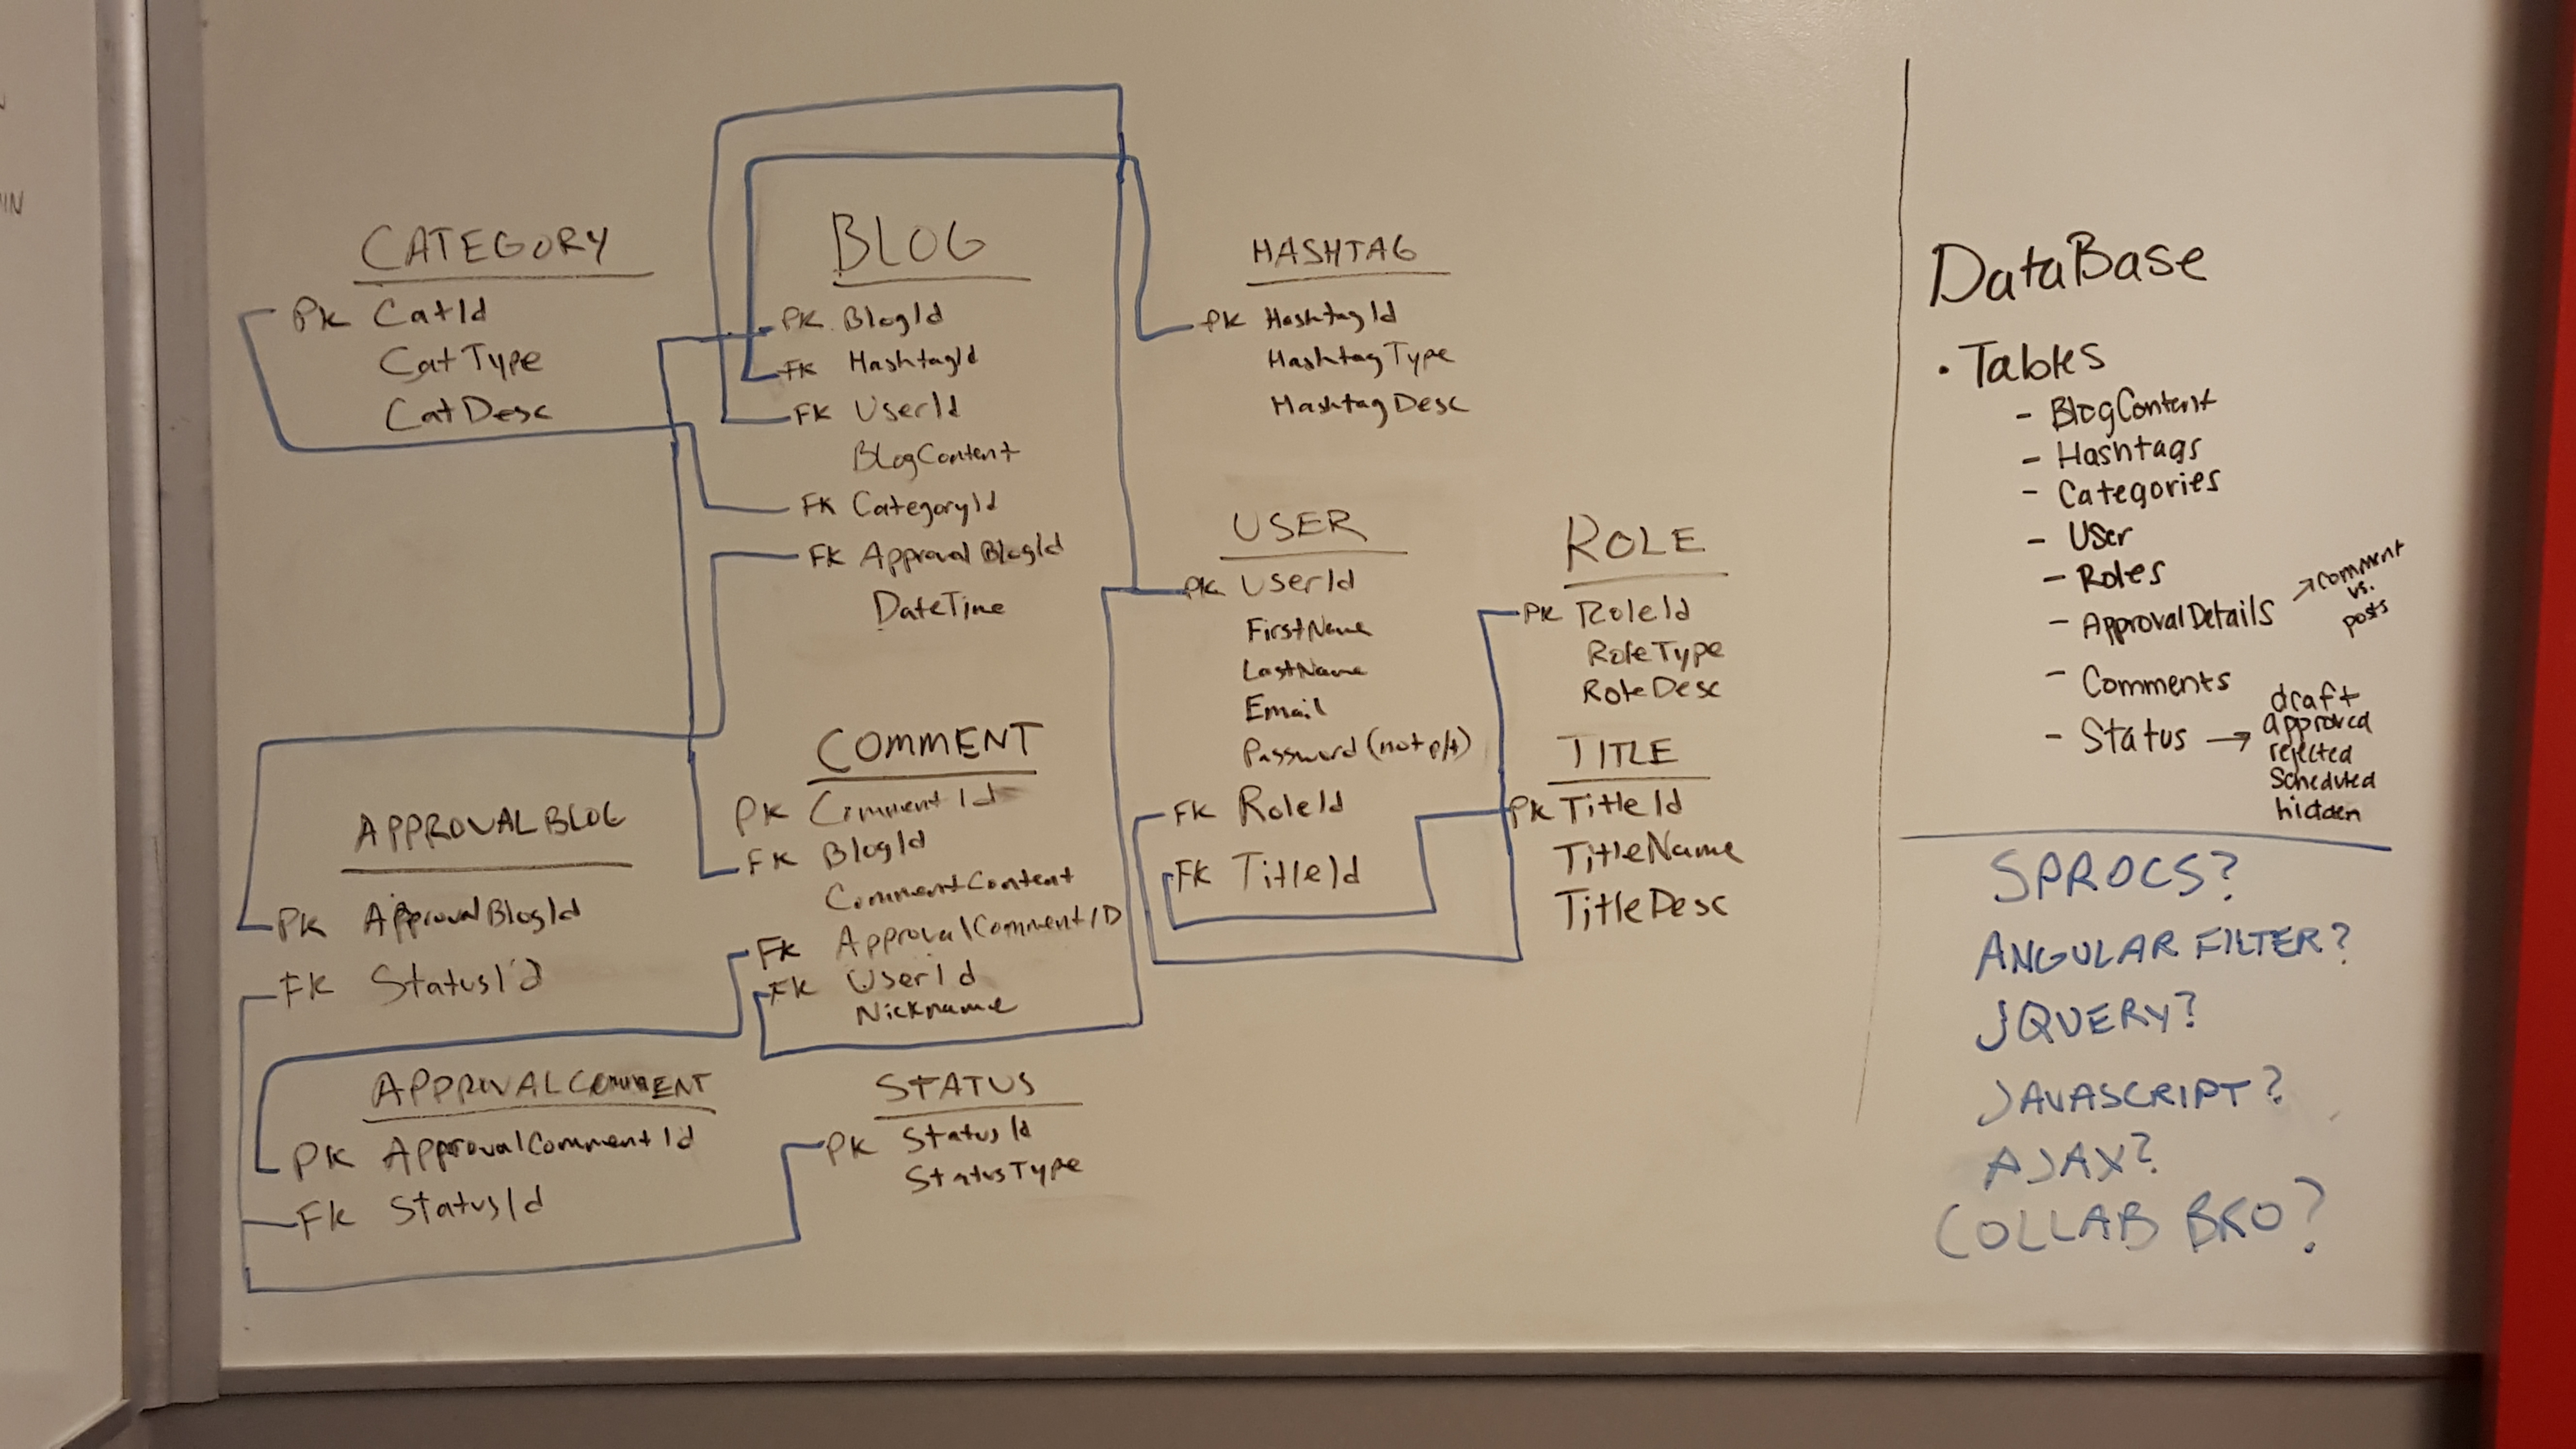 CATEGORY
PK CatId
CatType
CatDesc
BLOG
PK BlogId
FK HashtagId
FK UserId
BlogContent
FK CategoryId
FK ApprovalBlogId
DateTime
HASHTAG
PK HashtagId
HashtagType
HashtagDesc
USER
PK UserId
FirstName
LastName
Email
Password (not p/t)
FK RoleId
FK TitleId
ROLE
PK RoleId
RoleType
RoleDesc
TITLE
PK TitleId
TitleName
TitleDesc
COMMENT
PK CommentId
FK BlogId
CommentContent
FK ApprovalCommentID
FK UserId
Nickname
APPROVALBLOG
PK ApprovalBlogId
FK StatusId
APPROVALCOMMENT
PK ApprovalCommentId
FK StatusId
STATUS
PK StatusId
StatusType
DataBase
• Tables
- BlogContent
- Hashtags
- Categories
- User
- Roles
- ApprovalDetails → comment
vs.
posts
- Comments
- Status → draft
approved
rejected
Scheduled
hidden
SPROCS?
ANGULAR FILTER?
JQUERY?
JAVASCRIPT?
AJAX?
COLLAB BRO?